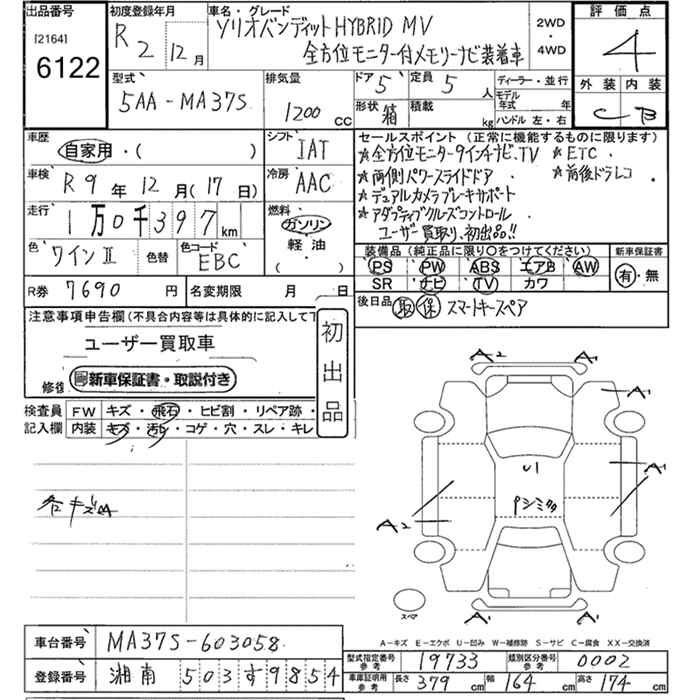 出品番号
[2164]
6122
初度登録年月
R 2 12 月
車名・グレード
ソリオバンディット HYBRID MV
全方位モニター付メモリーナビ装着車
2WD
・
4WD
評価点
4
外装 内装
C B
型式
5AA-MA37S
排気量
1200 CC
ドア 5
形状 箱
定員 5 人
積載 kg
ディーラー・並行
モデル年式 年
ハンドル 左・右
車歴
自家用・( )
車検 R 9 年 12 月 ( 17 日)
走行 1 万 0 千 3 9 7 km
色 ワインⅡ 色替 色コード EBC
シフト IAT
冷房 AAC
燃料
ガソリン
軽油
( )
R券 7690 円 名変期限 月 日
セールスポイント (正常に機能するものに限ります)
☆全方位モニター9インチナビ、TV ☆ETC
☆両側パワースライドドア ☆前後ドラレコ
☆デュアルカメラブレーキサポート
☆アダプティブクルーズコントロール
ユーザー買取り、初出品!!
装備品 (純正品に限り○をつけてください) 新車保証書
PS PW ABS エアB AW
SR ナビ TV カワ
有・無
後日品 取 保 スマートキースペア
注意事項申告欄 (不具合内容等は具体的に記入して下
ユーザー買取車
修復
新車保証書・取説付き
初出品
検査員 FW キズ・飛石・ヒビ割・リペア跡・
記入欄 内装 キズ・汚レ・コゲ・穴・スレ・キレ
各キズA
A2 A1
A1
A1
U1
Pシミタタ
A2
A1 A1
スペア
A-キズ E-エクボ U-凹み W-補修跡 S-サビ C-腐食 XX-交換済
車台番号 MA37S-603058
登録番号 湘南 503 す 9854
型式指定番号 参考 19733 類別区分番号 参考 0002
車庫証明用 参考 長さ 379 cm 幅 164 cm 高さ 174 cm